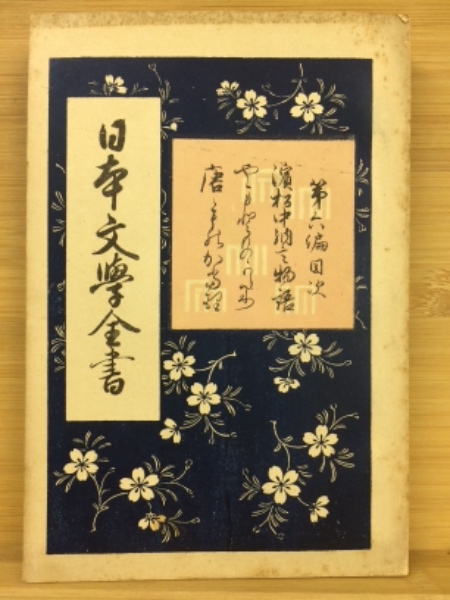 第六編目次
濱松中納言物語
やまとものかたり
唐ものかたり
日本文學全書